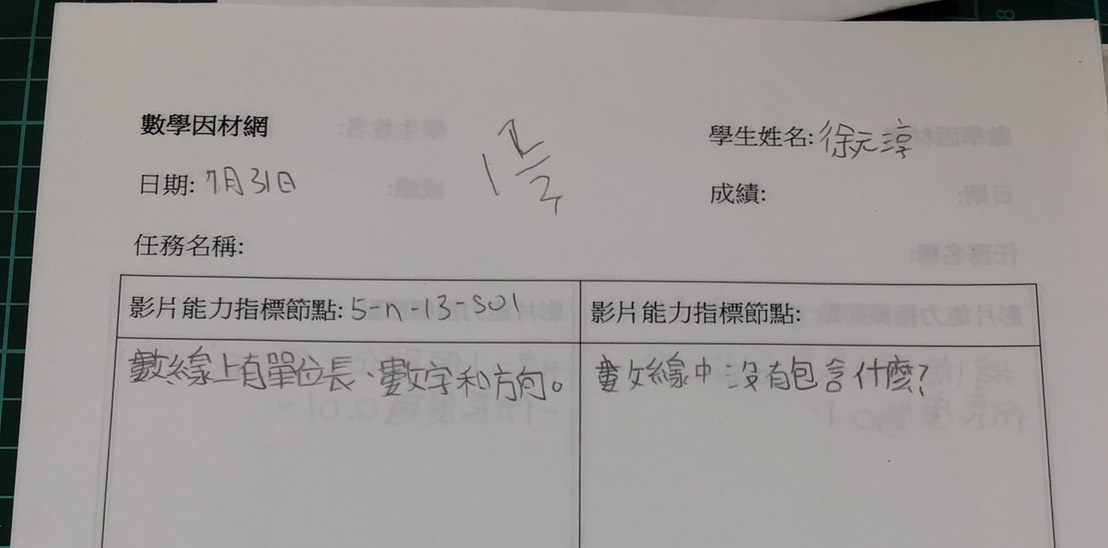 數學因材網
學生姓名: 徐元淳
日期: 7月31日
1 1/2
成績:
任務名稱:
影片能力指標節點: 5-n-13-S01
影片能力指標節點:
數線上有單位長、數字和方向。
數線中沒有包含什麼?